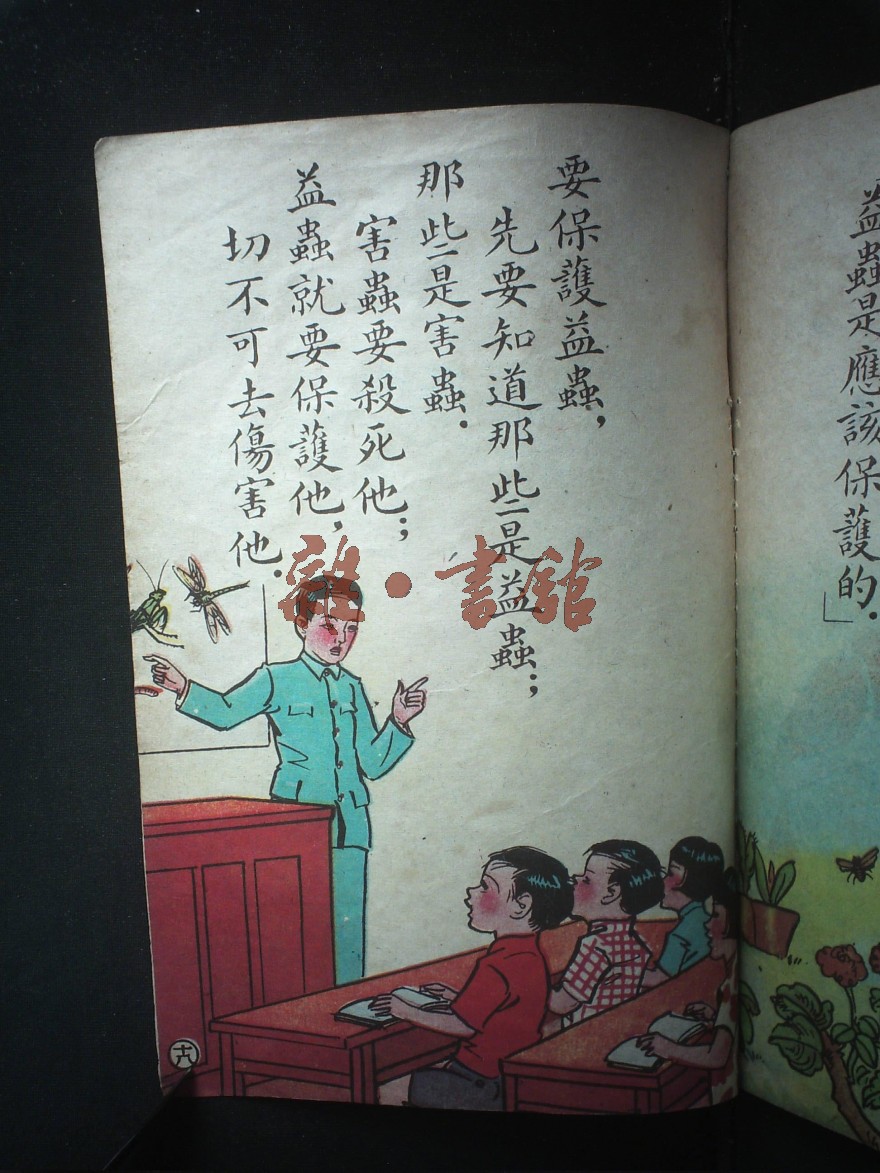 益蟲是應該保護的.」
要保護益蟲,
先要知道那些是益蟲;
那些是害蟲.
害蟲要殺死他;
益蟲就要保護他,
切不可去傷害他.
雜·書館
十八